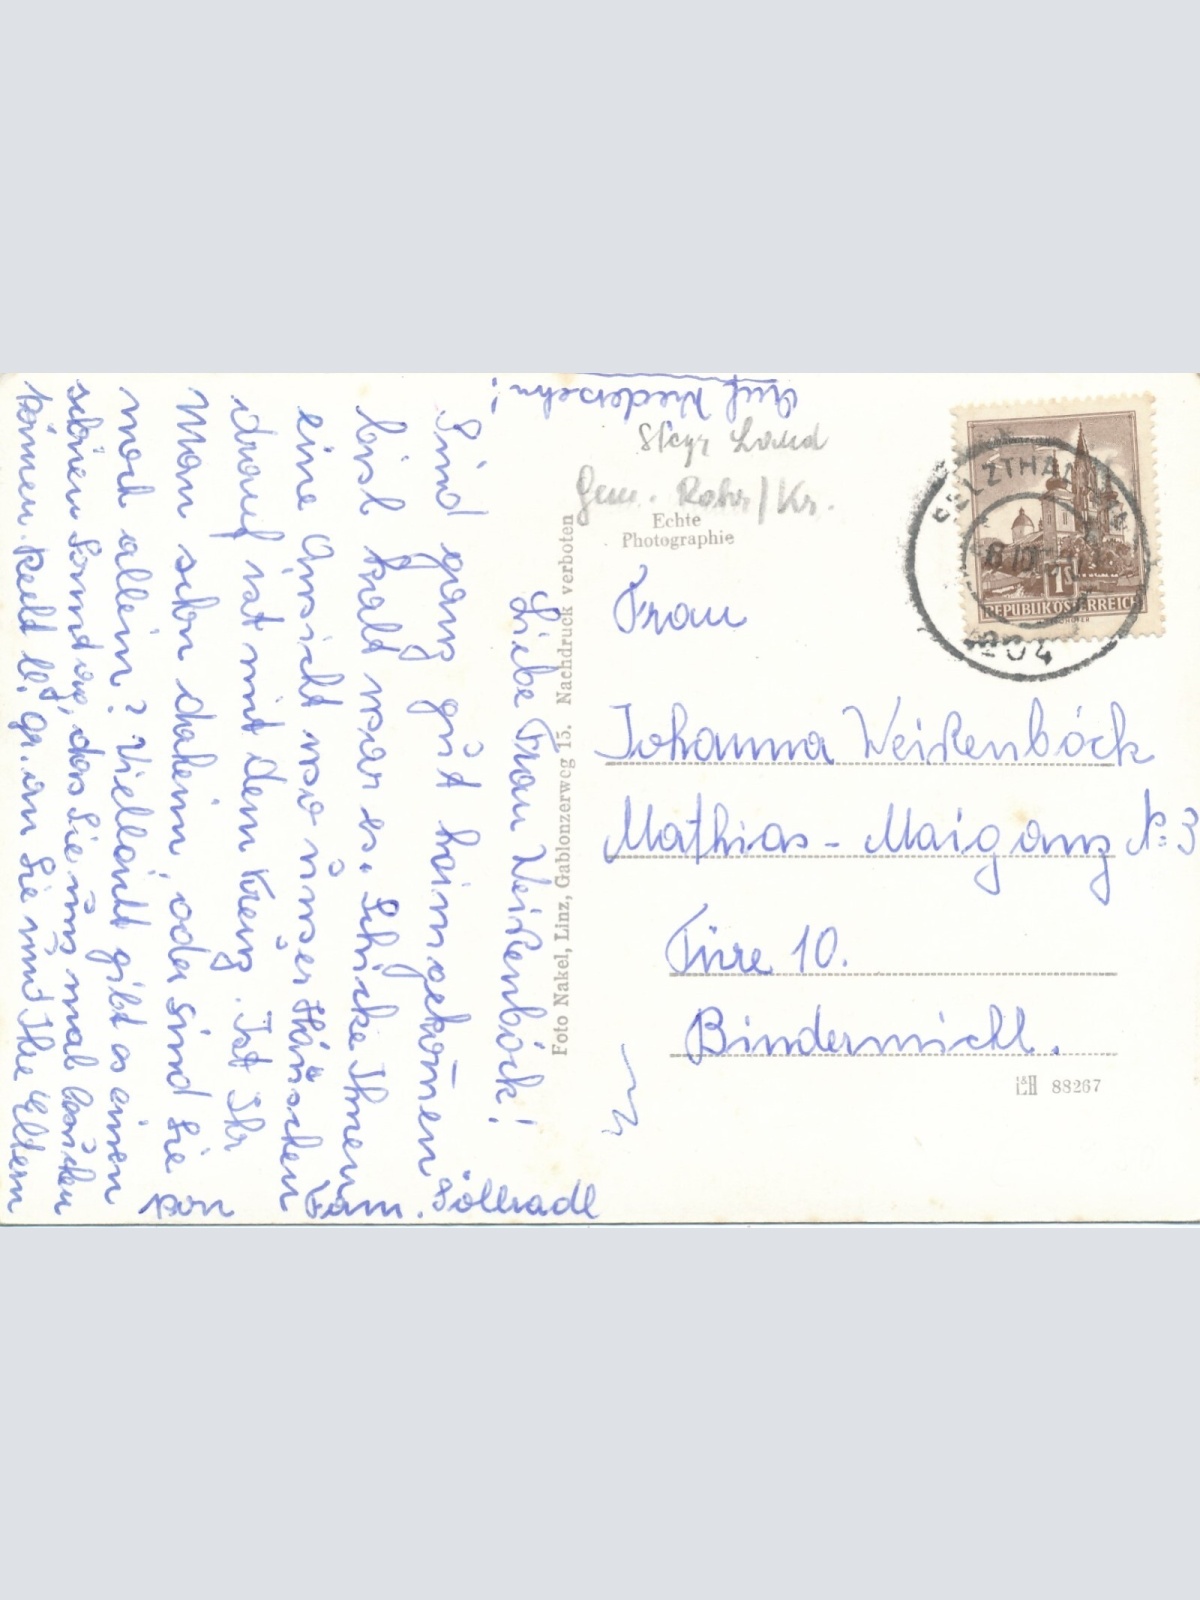 Liebe Frau Weißenböck!
Sind ganz gut heimgekomen
bisl kalt war es. Schicke Ihnen
eine Ansicht wo unser Häuschen
drauf ist mit dem Kreuz. Ist Ihr
Mann schon daheim, oder sind Sie
noch allein? Vielleicht gibt es einen
schönen Sonntag, das Sie uns mal besuchen
können. Recht lb. gr. an Sie und Ihre Eltern
von Fam.
Auf Wiedersehn!
Foto Nakel, Linz, Gablonzerweg 15. Nachdruck verboten
Steyr Land
Gem. Rohr/Kr.
Echte
Photographie
SELZTHAL
REPUBLIK ÖSTERREICH
Frau
Johanna Weißenböck
Mathias-Maigang N: 3
Türe 10.
Bindermichl.
88267